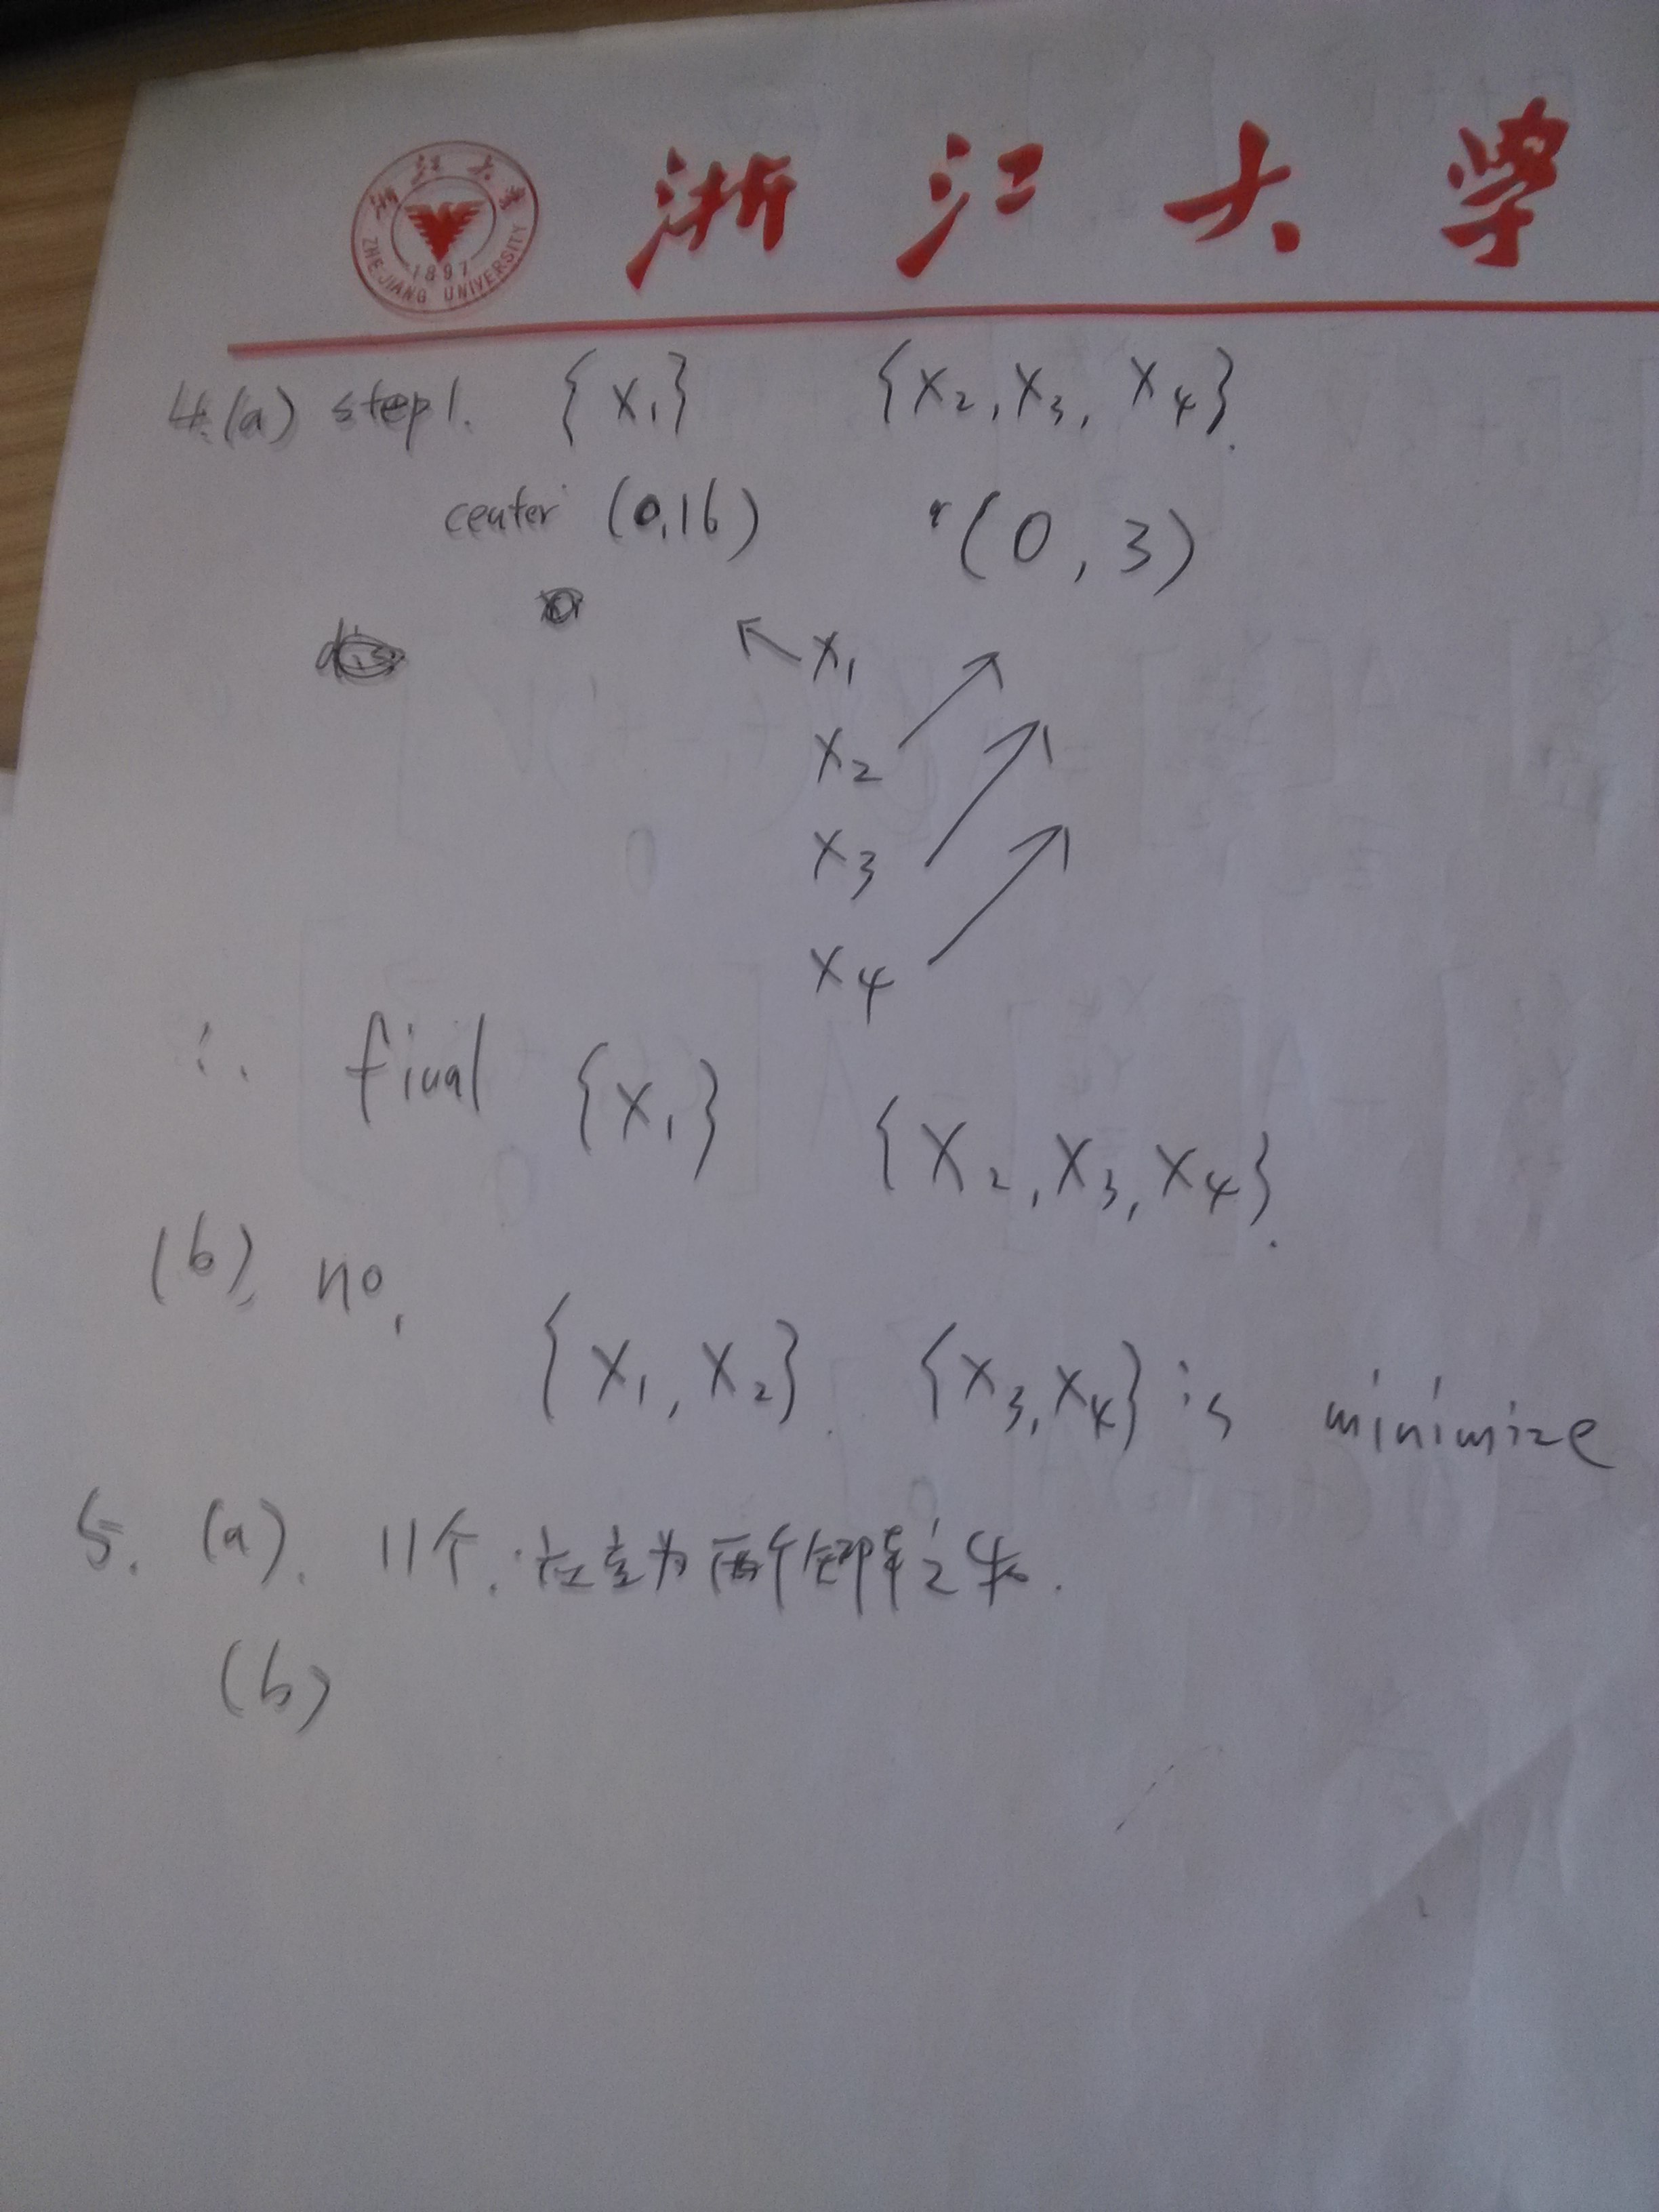 浙江大学
ZHEJIANG UNIVERSITY
1897
浙江大学
4.(a) step1. {x₁} {x₂, x₃, x₄}.
center (0,16) (0,3)
x₁
x₂
x₃
x₄
∴ final {x₁} {x₂, x₃, x₄}.
(b), no, {x₁, x₂}. {x₃, x₄} is minimize
5. (a). 11个. 为两个矩阵之
(b)